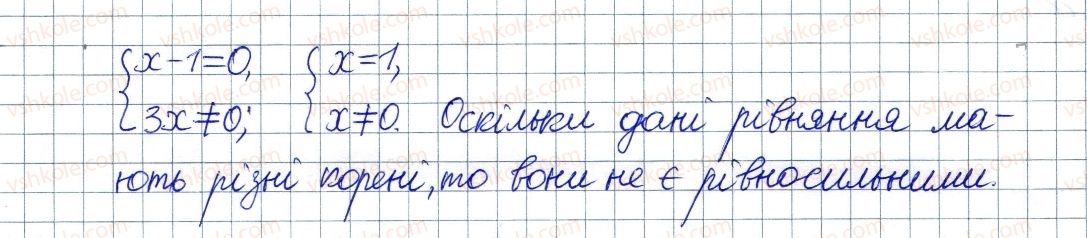 {x-1=0, {x=1,
{3x≠0; {x≠0. Оскільки дані рівняння ма-
ють різні корені, то вони не є рівносильними.
vshkole.com